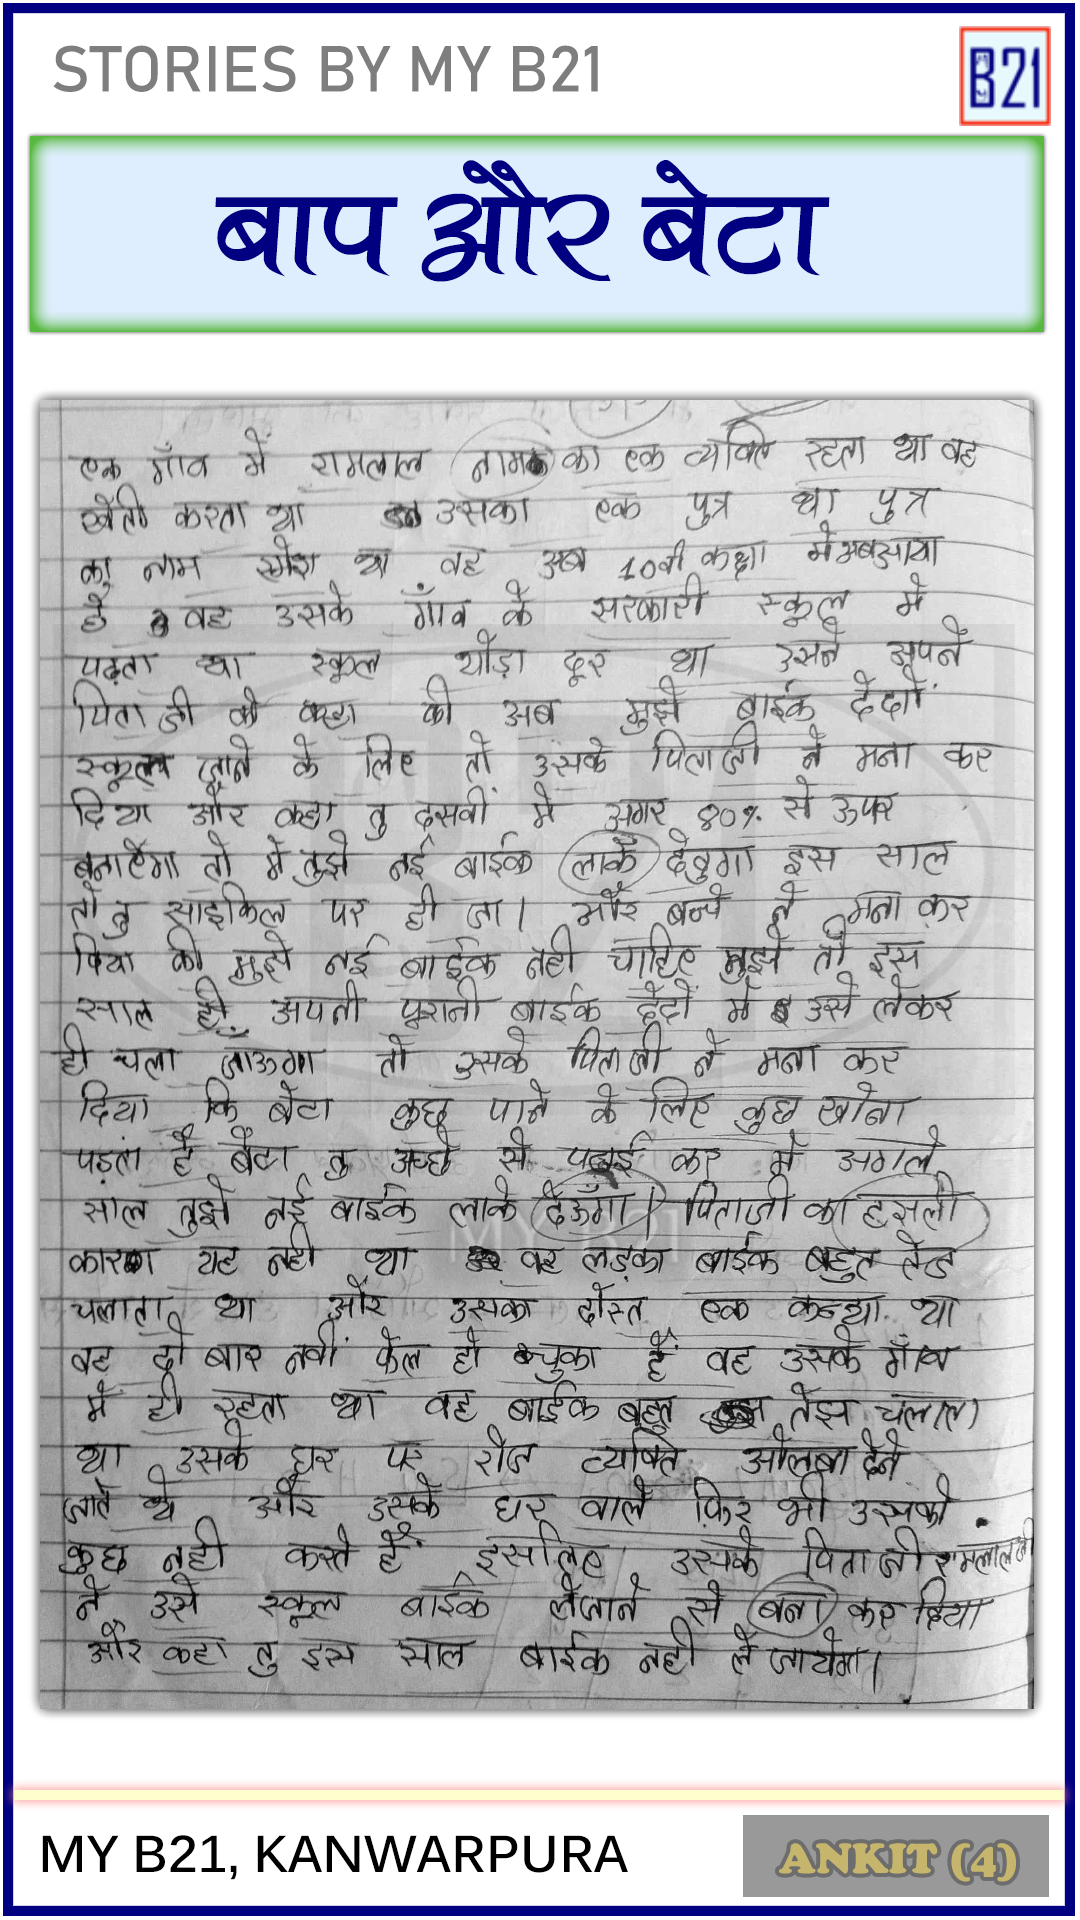 STORIES BY MY B21
B21
बाप और बेटा
एक गाँव में रामलाल नाम का एक व्यक्ति रहता था वह
खेती करता था उसका एक पुत्र था पुत्र
का नाम रमेश था वह अब 10वी कक्षा मे
है वह उसके गाँव के सरकारी स्कूल मे
पढ़ता था स्कूल थोड़ा दूर था उसने अपने
पिता जी को कहा की अब मुझे बाईक देदो
स्कूल जाने के लिए तो उसके पिताजी ने मना कर
दिया और कहा तु दसवीं मे अगर 80% से ऊपर
बनाऐगा तो मे तुझे नई बाईक लाके देवुगा इस साल
तो तु साइकिल पर ही जा। और बच्चे ने मना कर
दिया की मुझे नई बाईक नही चाहिए मुझे तो इस
साल ही अपनी पुरानी बाईक देदो मे उसे लेकर
ही चला जाँऊगा तो उसके पिताजी ने मना कर
दिया कि बेटा कुछ पाने के लिए कुछ खोना
पड़ता है बेटा तु अच्छे से पढाई कर मे अगले
साल तुझे नई बाईक लाके देऊँगा। पिताजी का हसली
कारण यह नही था वह लड़का बाईक बहुत तेज
चलाता था और उसका दोस्त एक कन्हया था
वह दो बार नवीं फेल हो चुका हैं वह उसके गाँव
मे ही रहता था वह बाईक बहुत तेझ चलाता
था उसके घर पर रोज व्यक्ति ओलबा देने
जाते थे और उसके घर वाले फिर भी उसको
कुछ नही कहते हैं इसलिए उसके पिताजी रामलाल जी
ने उसे स्कूल बाईक लेजाने से बना कर दिया
और कहा तु इस साल बाईक नही ले जायेगा।
MY B21
MY B21, KANWARPURA
ANKIT (4)